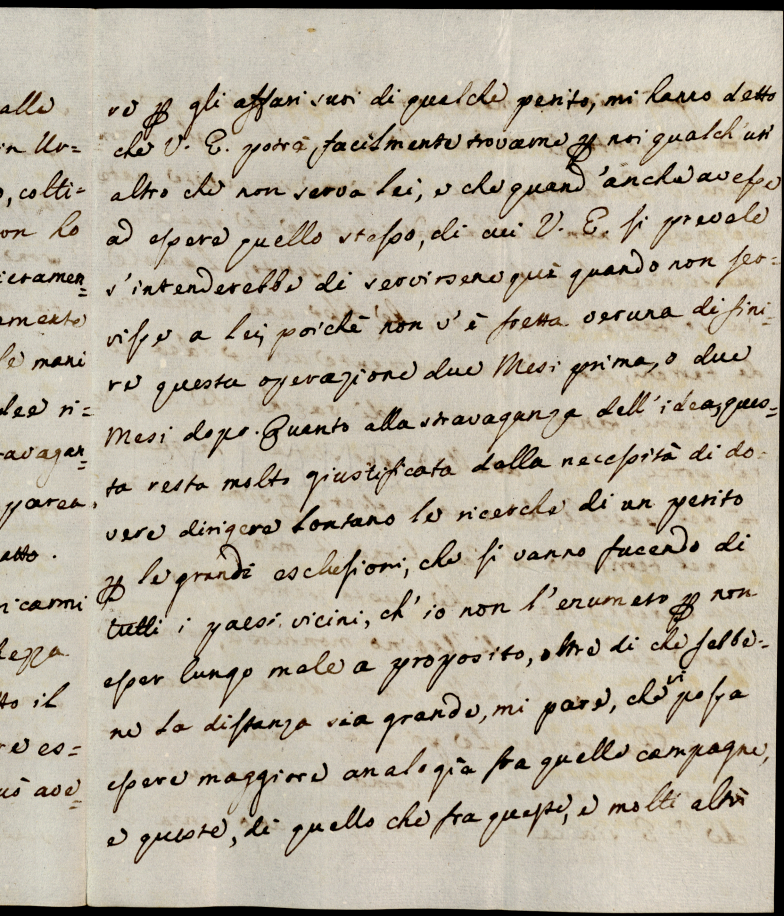 alle
in Ur=
o, colti=
on ho
icramen=
amento
le mani
dee ri=
ravagan=
parea,
atto.
ricarmi
lezza
to il
re es=
uò ave=
re p gli affari suoi di qualche perito, mi hanno detto
che V. E. potrà facilmente trovarne p noi qualch'un
altro che non serva Lei, e che quand'anche avesse
ad essere quello stesso, di cui V. E. si prevale
s'intenderebbe di servirsene quì quando non ser=
visse a Lei, poichè non v'è fretta veruna di fini=
re questa operazione due Mesi prima, o due
Mesi dopo. Quanto alla stravaganza dell'idea, ques=
ta resta molto giustificata dalla necessità di do=
vere dirigere Lontano le ricerche di un perito
p le grandi esclusioni, che si vanno facendo di
tutti i paesi vicini, ch'io non l'enumero p non
esser lungo male a proposito, oltre di che sebbe=
ne La distanza sia grande, mi pare, che vi possa
essere maggiore analogia fra quelle campagne,
e queste, di quello che fra queste, e molti altri